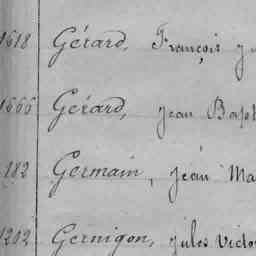 1618 Gérard, François J
1666 Gérard, Jean Bapt
182 Germain, Jean Ma
1202 Gernigon, Jules Victo